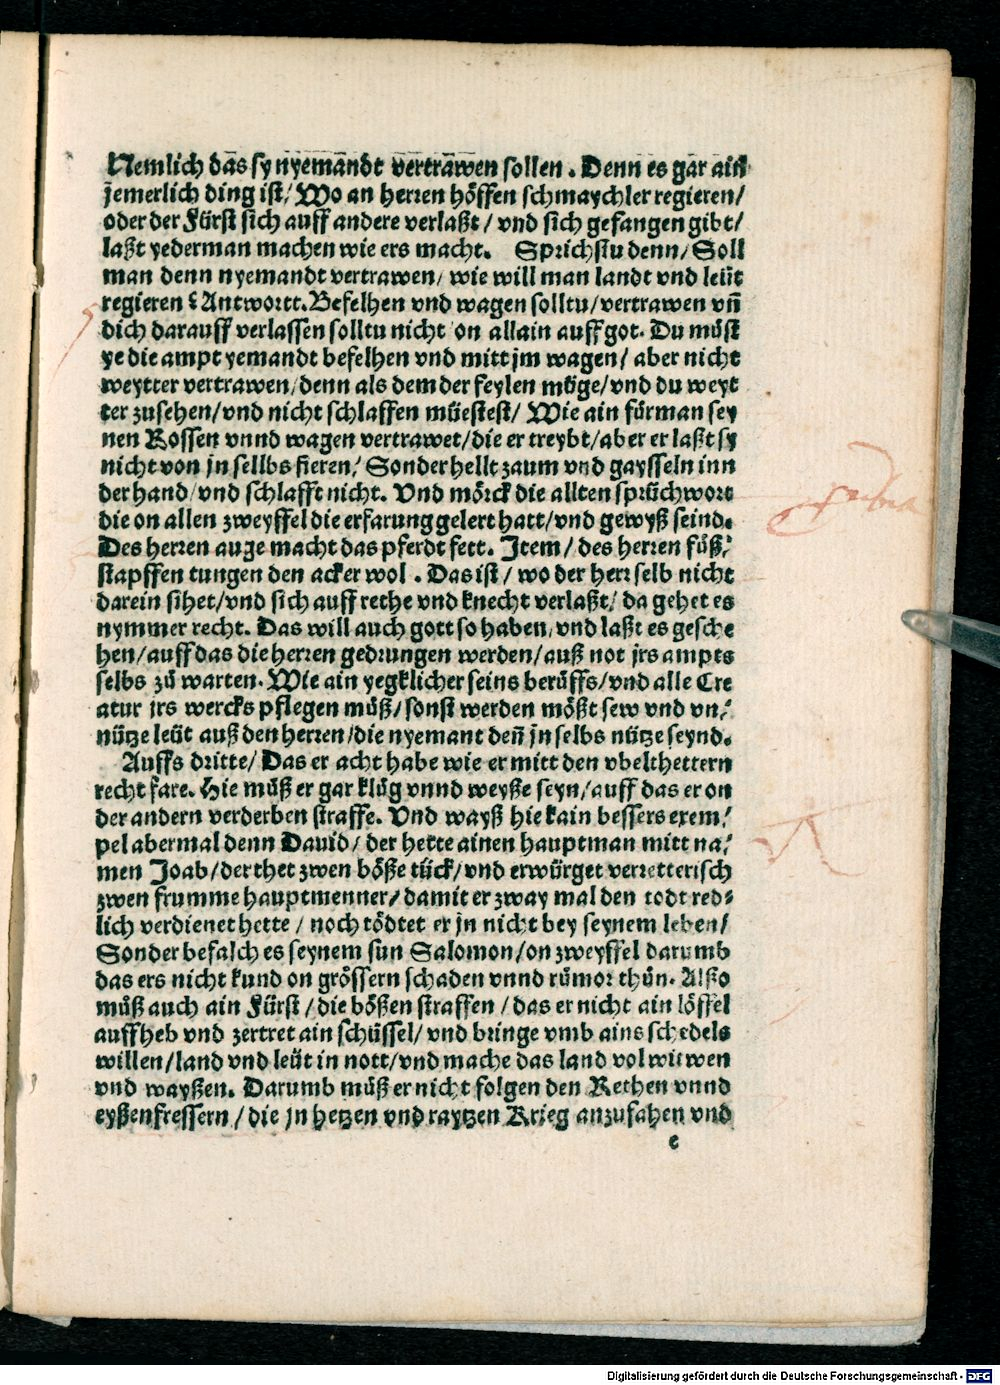 Nemlich das sy nyemandt vertrawen sollen. Denn es gar ain
jemerlich ding ist/ Wo an herren höffen schmaychler regieren/
oder der Fürst sich auff andere verlaßt/ vnd sich gefangen gibt/
laßt yederman machen wie ers macht. Sprichstu denn/ Soll
man denn nyemandt vertrawen/ wie will man landt vnd leüt
regieren? Antwortt. Befelhen vnd wagen solltu/ vertrawen vñ
dich darauff verlassen solltu nicht on allain auff got. Du můst
ye die ampt yemandt befelhen vnd mitt jm wagen/ aber nicht
weytter vertrawen/ denn als dem der feylen möge/ vnd du weyt
ter zusehen/ vnd nicht schlaffen müestest/ Wie ain fůrman sey
nen Rossen vnnd wagen vertrawet/ die er treybt/ aber er laßt sy
nicht von jn sellbs fieren/ Sonder hellt zaum vnd gaysseln inn
der hand/ vnd schlafft nicht. Vnd mörck die allten sprüchwort
die on allen zweyffel die erfarung gelert hatt/ vnd gewyß seind.
Des herren auge macht das pferdt fett. Item/ des herren fůß⸗
stapffen tungen den acker wol. Das ist/ wo der herr selb nicht
darein sihet/ vnd sich auff rethe vnd knecht verlaßt/ da gehet es
nymmer recht. Das will auch gott so haben/ vnd laßt es gesche
hen/ auff das die herren gedrungen werden/ auß not jrs ampts
selbs zů warten. Wie ain yegklicher seins berůffs/ vnd alle Cre
atur jrs wercks pflegen můß/ sonst werden mößt sew vnd vn⸗
nütze leüt auß den herren/ die nyemant deñ jn selbs nütze seynd.
Auffs dritte/ Das er acht habe wie er mitt den vbelthettern
recht fare. Hie můß er gar klůg vnnd weyße seyn/ auff das er on
der andern verderben straffe. Vnd wayß hie kain bessers exem⸗
pel abermal denn Dauid/ der hette ainen hauptman mitt na⸗
men Joab/ der thet zwen böße tück/ vnd erwürget verretterisch
zwen frumme hauptmenner/ damit er zway mal den todt red⸗
lich verdienet hette/ noch tödtet er jn nicht bey seynem leben/
Sonder befalch es seynem sun Salomon/ on zweyffel darumb
das ers nicht kund on grössern schaden vnnd růmor thůn. Alßo
můß auch ain Fürst/ die bößen straffen/ das er nicht ain löffel
auffheb vnd zertret ain schüssel/ vnd bringe vmb ains schedels
willen/ land vnd leüt in nott/ vnd mache das land vol witwen
vnd wayßen. Darumb můß er nicht folgen den Rethen vnnd
eyßenfressern/ die jn hetzen vnd raytzen Krieg anzufahen vnd
e
Digitalisierung gefördert durch die Deutsche Forschungsgemeinschaft - DFG